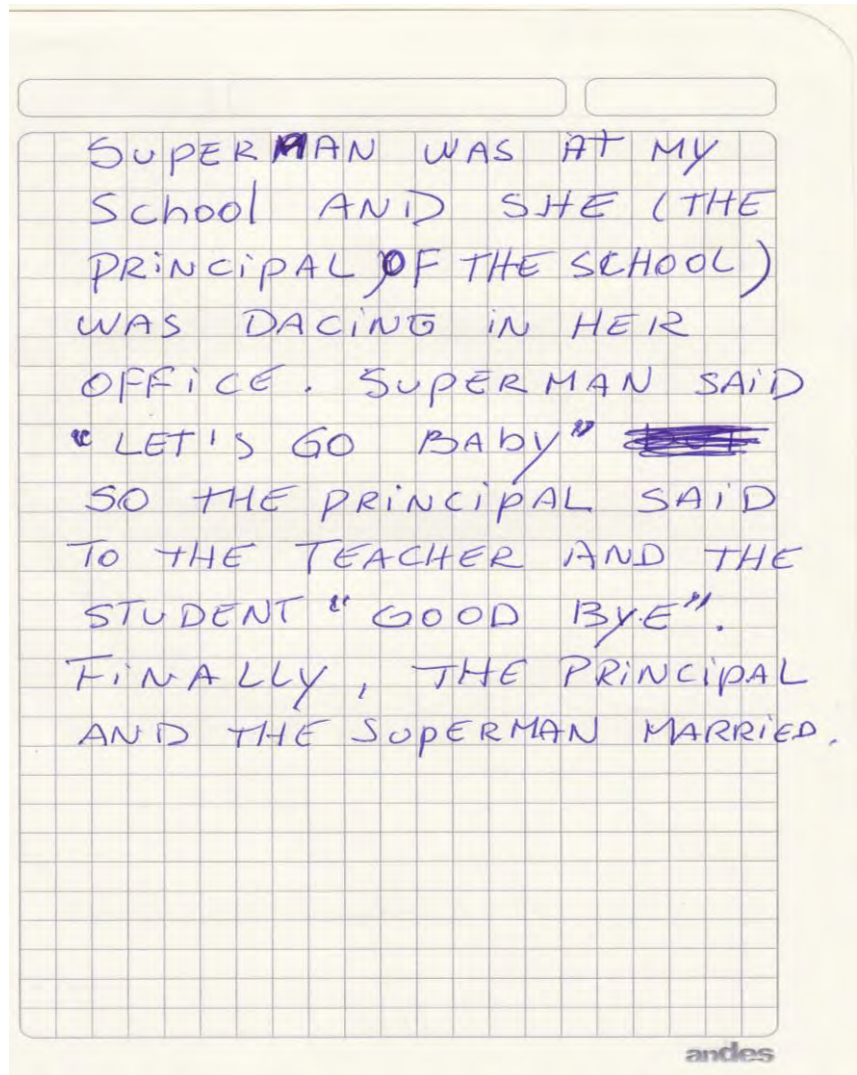 SUPERMAN WAS AT MY
School AND SHE (THE
PRiNCiPAL OF THE SCHOOL)
WAS DACiNG iN HER
OFFiCE. SUPERMAN SAiD
"LET'S GO BAby"
SO THE PRiNCiPAL SAiD
TO THE TEACHER AND THE
STUDENT "GOOD BYE".
FiNALLY, THE PRiNCiPAL
AND THE SUPERMAN MARRiED.
andes